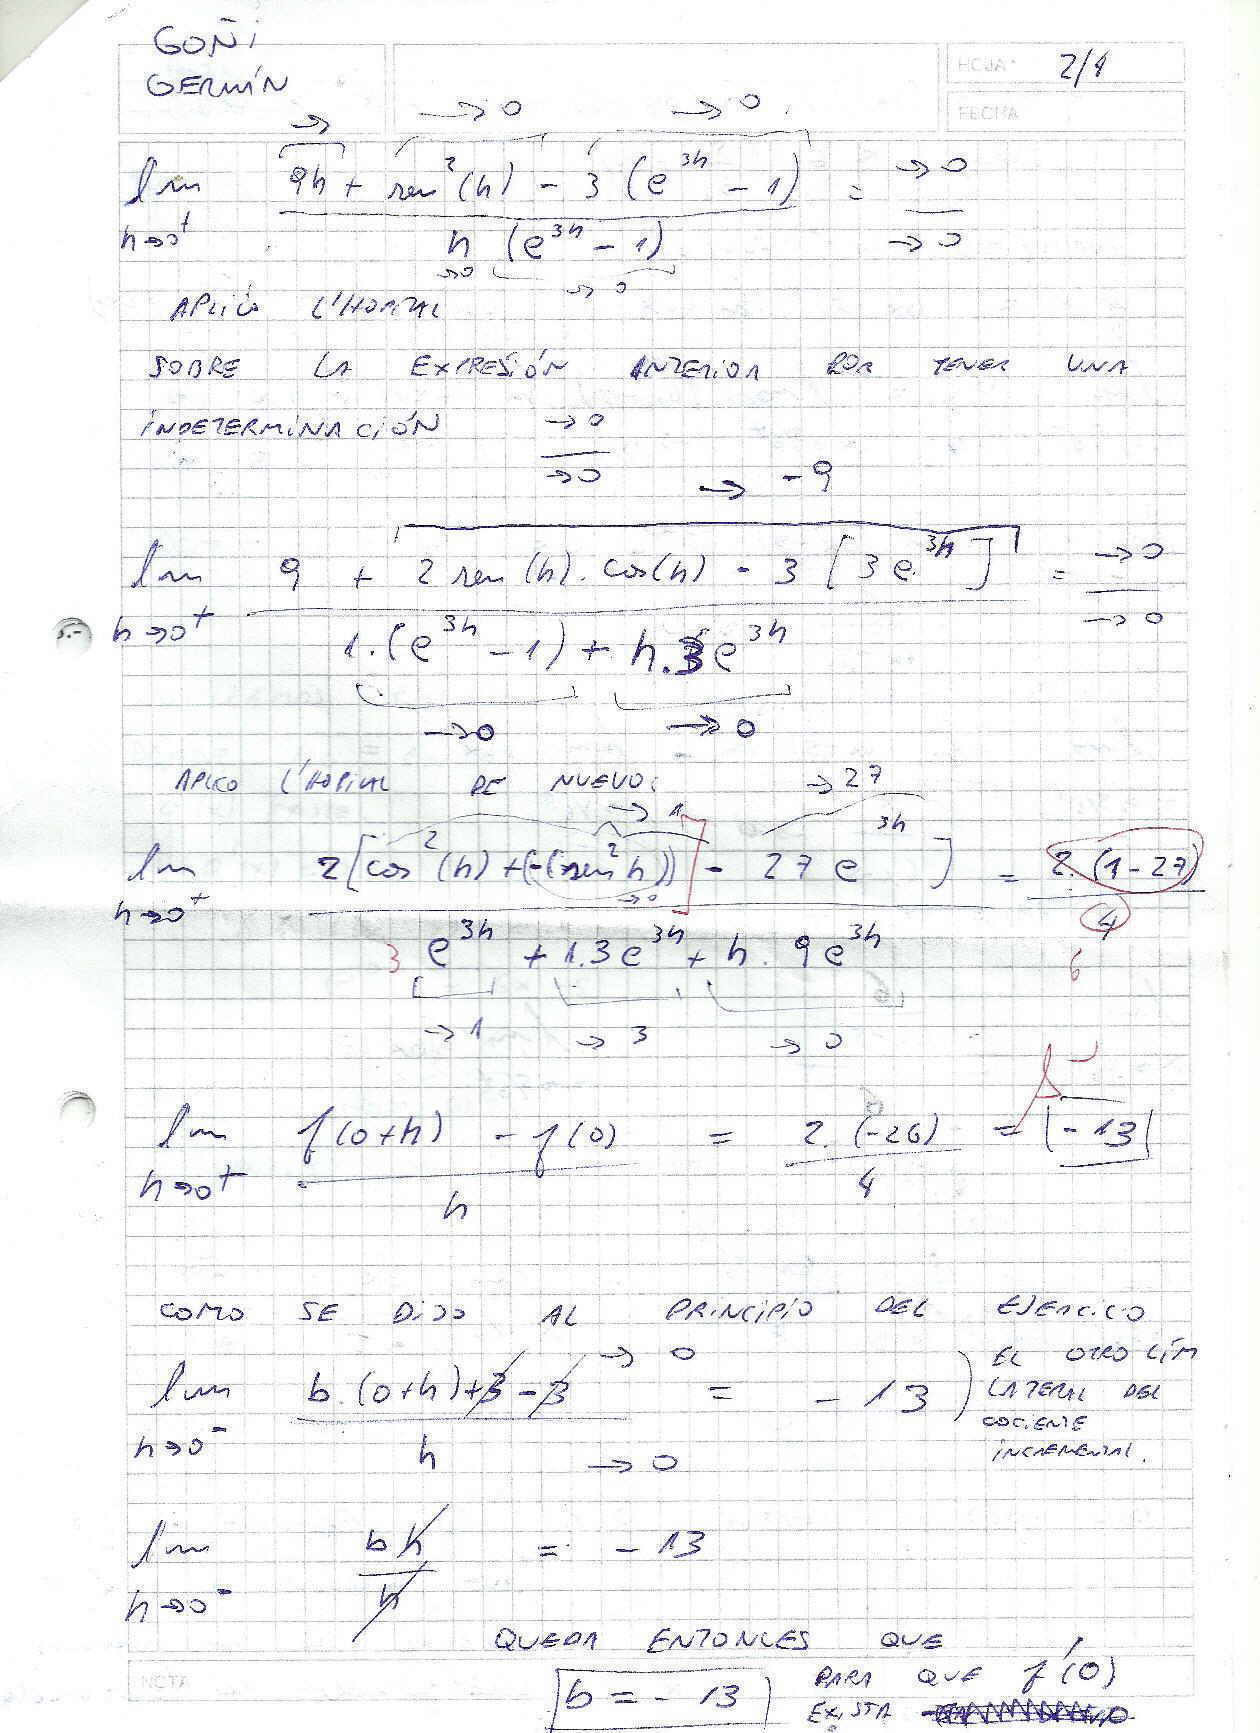 GOÑI
GERMÍN
HOJA 2/4
FECHA
→ →0 →0
lim 9h + sen²(h) - 3 (e^3h - 1) = →0
h→0⁺ h (e^3h - 1) →0
→0 →0
APLICO L'HOPITAL
SOBRE LA EXPRESIÓN ANTERIOR POR TENER UNA
INDETERMINACIÓN →0
→0
→ -9
lim 9 + 2 sen(h). cos(h) - 3 [3 e^3h] = →0
h→0⁺ 1.(e^3h - 1) + h.3e^3h →0
→0 →0
APLICO L'HOPITAL DE NUEVO:
→1 →27
lim 2[cos²(h) + (-(sen²h))] - 27 e^3h ] = 2.(1-27)
→0
h→0⁺ 3 e^3h + 1.3e^3h + h. 9e^3h 4
6
→1 →3 →0
lim f(0+h) - f(0) = 2.(-26) = |-13|
h→0⁺ h 4
COMO SE DIJO AL PRINCIPIO DEL EJERCICIO
→0
lim b.(0+h)+3-3 = -13 ) EL OTRO LÍM
h→0⁻ h →0
LATERAL DEL
COCIENTE
INCREMENTAL.
lim bh = -13
h→0⁻ h
QUEDA ENTONCES QUE
NOTA
b = -13 PARA QUE f'(0)
EXISTA